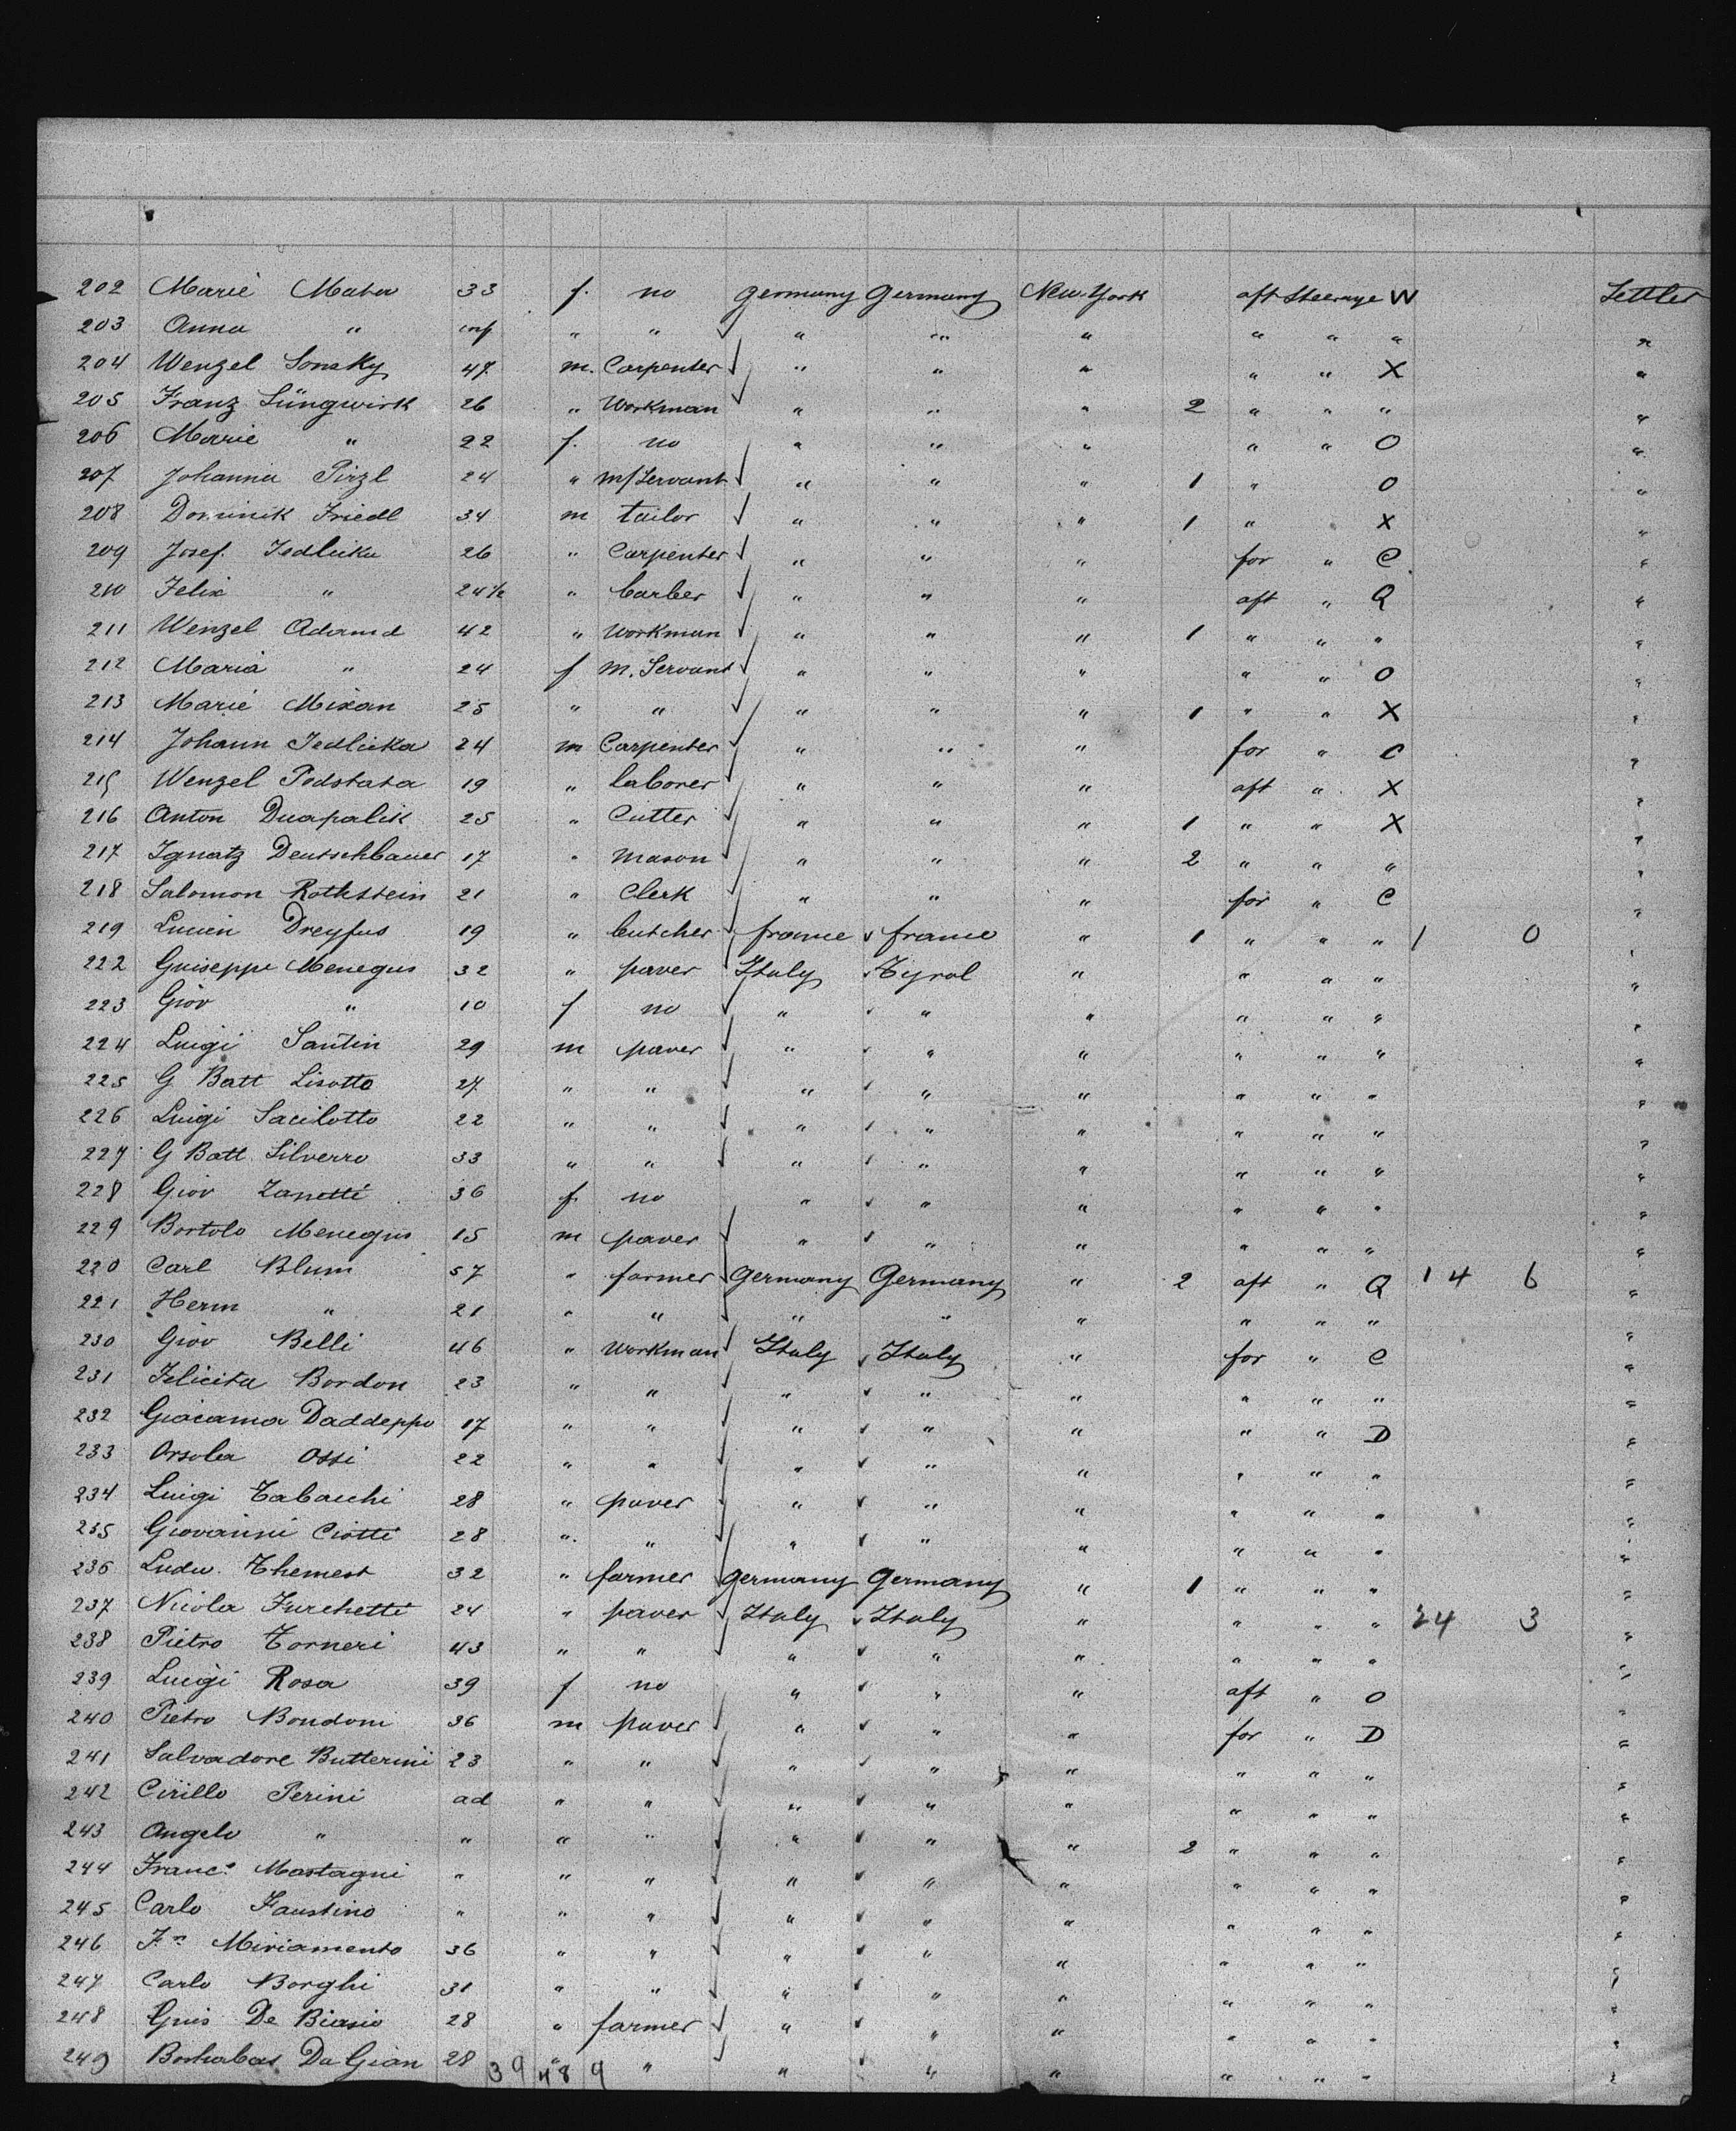 202 Marie Mata 33 f. no Germany Germany New York aft Steerage W Settler
203 Anna " inf " " " " " " " " "
204 Wenzel Sonsky 47 m. Carpenter " " " " " X "
205 Franz Süngwirk 26 " Workman " " " 2 " " " "
206 Marie " 22 f. no " " " " " O "
207 Johanna Pirzl 24 " m/Servant " " " 1 " O "
208 Dominik Friedl 34 m tailor " " " 1 " X "
209 Josef Jedlicka 26 " Carpenter " " " for " C "
210 Felix " 24½ " barber " " " aft " Q "
211 Wenzel Adamd 42 " Workman " " " 1 " " " "
212 Maria " 24 f m. Servant " " " " " O "
213 Marie Mixan 25 " " " " " 1 " " X "
214 Johann Jedlicka 24 m Carpenter " " " for " C "
215 Wenzel Podstata 19 " laborer " " " aft " X "
216 Anton Duapalik 25 " Cutter " " " 1 " " X "
217 Ignatz Deutschbauer 17 " mason " " " 2 " " " "
218 Salomon Rothstein 21 " Clerk " " " for " C "
219 Lucien Dreyfus 19 " butcher france france " 1 " " " 1 0 "
222 Guiseppe Menegus 32 " paver Italy Tyrol " " " " "
223 Giov " 10 f no " " " " " " "
224 Luigi Santin 29 m paver " " " " " " "
225 G Batt Lisotto 27 " " " " " " " " "
226 Luigi Sacilotto 22 " " " " " " " " "
227 G Batt Silverro 33 " " " " " " " " "
228 Giov Zanetti 36 f. no " " " " " " "
229 Bortolo Menegus 15 m paver " " " " " " "
220 Carl Blum 57 " farmer Germany Germany " 2 aft " Q 14 6 "
221 Herm " 21 " " " " " " " " "
230 Giov Belli 46 " Workman Italy Italy " for " C "
231 Felicita Bordon 23 " " " " " " " " "
232 Giacama Daddeppo 17 " " " " " " " D "
233 Orsola Ossi 22 " " " " " " " " "
234 Luigi Tabacchi 28 " paver " " " " " " "
235 Giovanni Ciotti 28 " " " " " " " " "
236 Ludw. Themest 32 " farmer Germany Germany " 1 " " " "
237 Nicola Furchetti 24 " paver Italy Italy " " " " 24 3 "
238 Pietro Torneri 43 " " " " " " " " "
239 Luigi Rosa 39 f no " " " aft " O "
240 Pietro Bondoni 36 m paver " " " for " D "
241 Salvadore Butterini 23 " " " " " " " " "
242 Cirillo Perini ad " " " " " " " " "
243 Angelo " " " " " " " 2 " " " "
244 Franc. Mastagni " " " " " " " " " "
245 Carlo Faustino " " " " " " " " " "
246 Fr. Miriamento 36 " " " " " " " " "
247 Carlo Borghi 31 " " " " " " " " "
248 Guis De Biasio 28 " farmer " " " " " " "
249 Da Gian 28 " " " " " " " " "
39 489